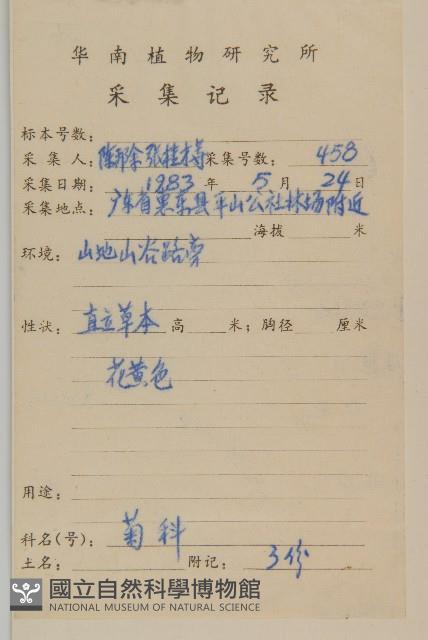 华南植物研究所
采集记录
标本号数：
采集人：陈邦余 张桂才 采集号数：458
采集日期：1983年5月24日
采集地点：广东省惠东县平山公社林场附近
海拔 米
环境：山地山谷路旁
性状：直立草本 高 米；胸径 厘米
花黄色
用途：
科名(号)：菊科
土名： 附记：3份
國立自然科學博物館
NATIONAL MUSEUM OF NATURAL SCIENCE